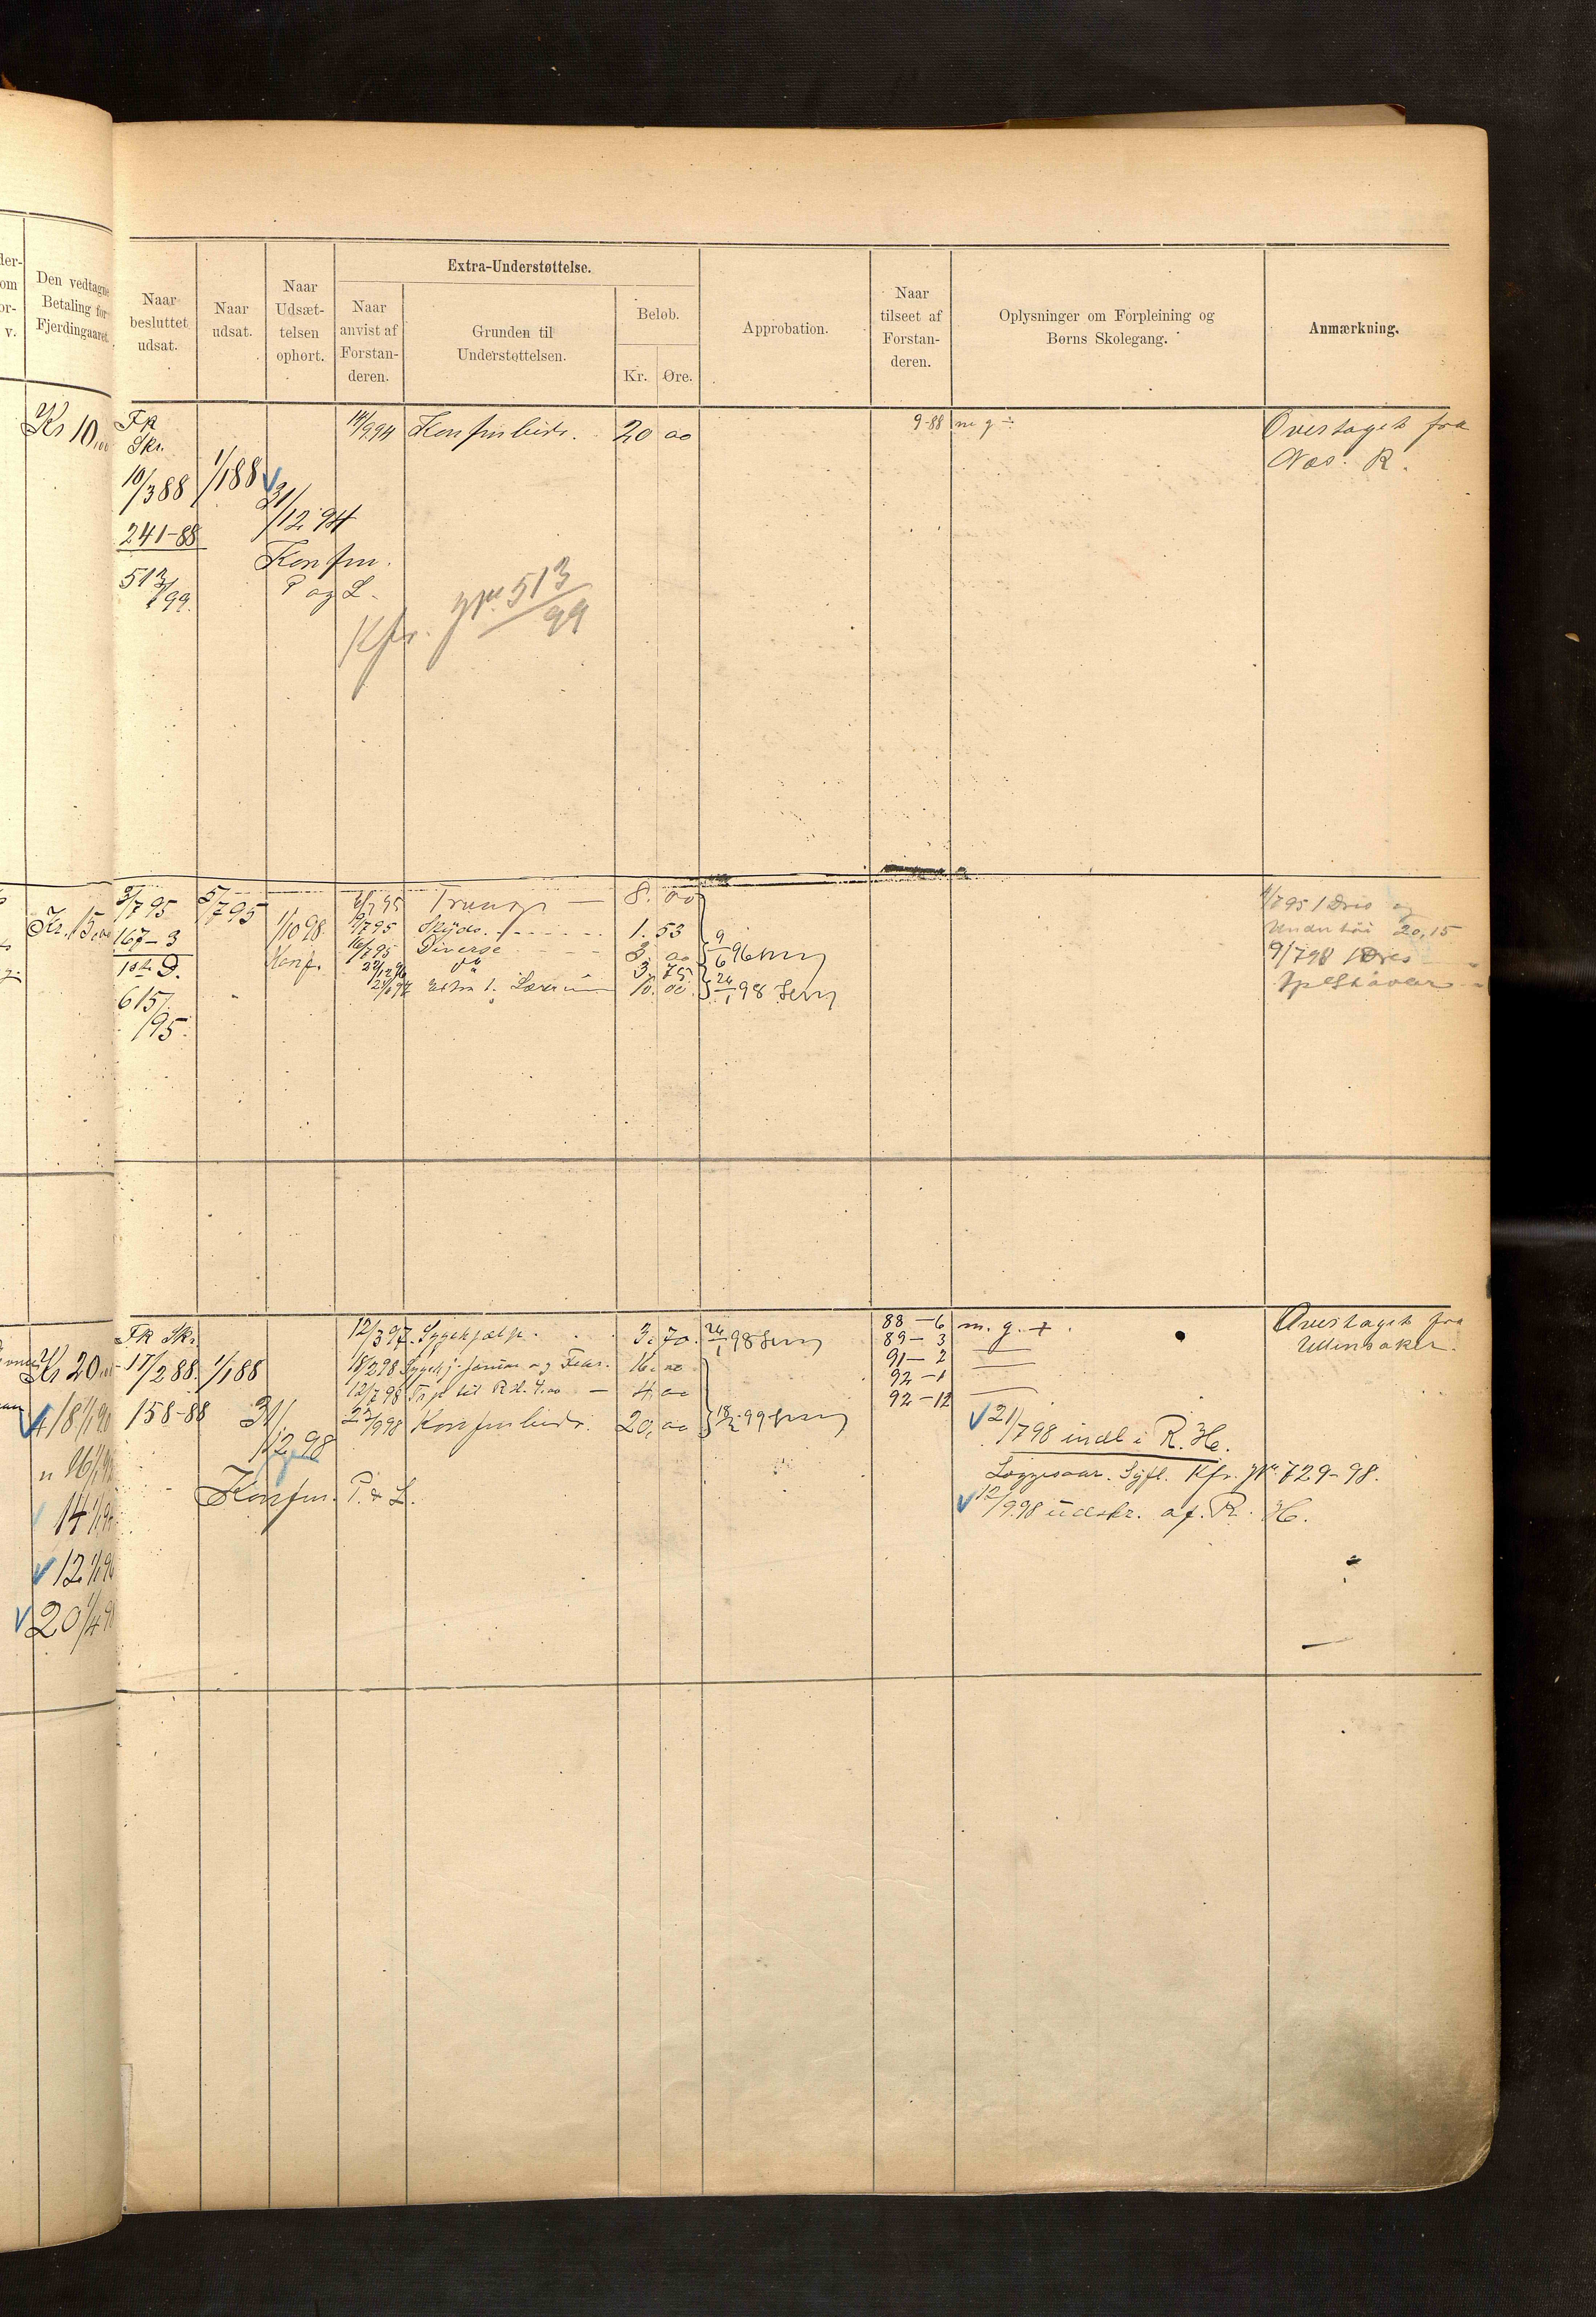 Den vedtagne
Betaling for
Fjerdingaaret.
Naar
besluttet
udsat.
Naar
udsat.
Naar
Udsæt-
telsen
ophørt.
Extra-Understøttelse.
Naar
anvist af
Forstan-
deren.
Grunden til
Understøttelsen.
Beløb.
Kr.
Øre.
Approbation.
Naar
tilseet af
Forstan-
deren.
Oplysninger om Forpleining og
Børns Skolegang.
Anmærkning.
Kr 10,00
FK
Skr.
10/3 88
241-88
513/99.
1/1 88
31/12 94
Konfm.
P og L.
14/9 94
Konfmbidr.
20 00
9-88
m g ÷
Overtaget fra
Næs. R.
Kfr. JNr. 513/99
Kr. 15,00
3/7 95
167-3
1ste D.
615/95.
5/7 95
1/10 98
Konf.
8. 00
9/7 95 Skyds. 1. 53
16/7 95 Diverse 3. 00
3. 75
10. 00
9/6 96
24/1 98
4/7 95 1 Dres og
Undertøi 20,15
9/7 98 1 Dres
Kr 20,00
FK Skr.
17/2 88.
158-88
1/1 88
31/12 98
Konfm. P. & L.
12/3 97. Sygehjælp. 3. 70.
18/2 98 Sygehj. Januar og Febr. 16. 00
12/7 98 4 00
22/9 98 Konfmbidr. 20, 00
24/1 98
18/2 99
88-6
89-3
91-2
92-1
92-12
m. g. +
21/7 98 indl i R. H.
Kfr. JNr. 729-98.
12/9 98 udskr. af. R. H.
Overtaget fra
Ullensaker.
18 1/1 90
16 1/1
14 1/1
12 1/1 96
20 1/4